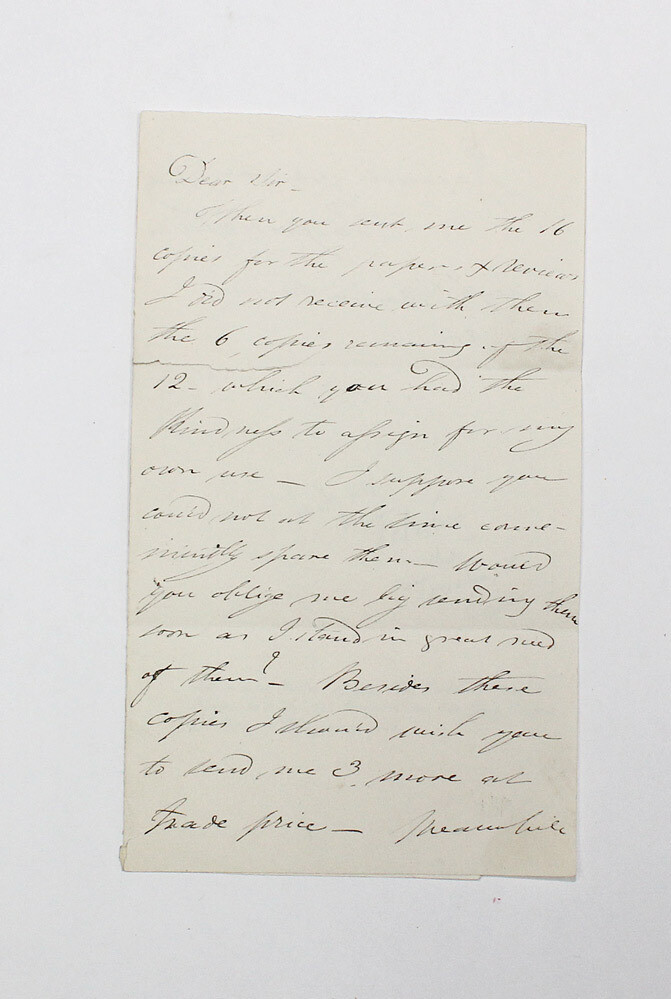 Dear Sir —
When you sent me the 16
copies for the papers & reviews
I did not receive with them
the 6 copies remaining of the
12 - which you had the
Kindness to assign for my
own use — I suppose you
could not at the time conve-
niently spare them — Would
you oblige me by sending them
soon as I stand in great need
of them? — Besides these
copies I should wish you
to send me 3 more at
trade price — Meanwhile